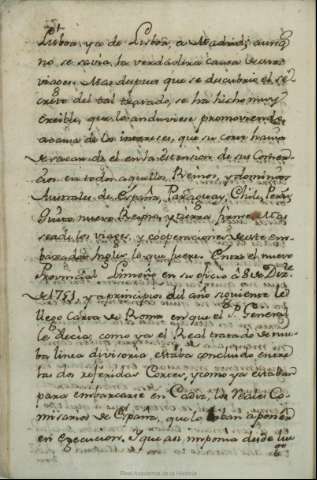 Lisboa, ya de Lisboa, a Madrid; aunq̃
no se savia, la verdadera causa de estos
viages. Mas despues que se descubrio el se-
creto del tal tratado, se ha hecho muy
creible, que lo anduviese promoviendo,
a causa de los intereses, que su corte havia
de sacar de el en la extension de sus Comer-
cios en todos aquellos Reinos, y dominios
Australes de España, Paraguay, Chile, Perù,
Quito, nuevo Reyno, y tierra firme. Mas
sea de los viages, y cooperaciones de este em-
baxador Ingles lo que fuere. Entrò el nuevo
Provincial en su oficio à 8 de Diz.re
de 1751, y a principios del año siguiente le
llego Carta de Roma en que el P. General
le decia, como ya el Real tratado de nue-
ba linea divisoria, estaba concluido entre
las dos referidas Cortes, y como ya estaban
para embarcarse en Cadiz los Reales Co-
misarios de España, que lo iban a poner
en execucion. Y que assi imponia desde lue-
Real Academia de la Historia